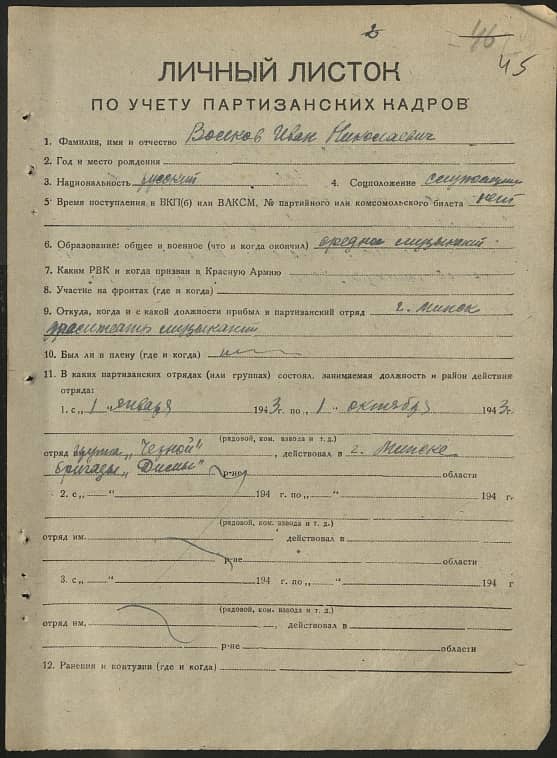 2
46
45
ЛИЧНЫЙ ЛИСТОК
ПО УЧЕТУ ПАРТИЗАНСКИХ КАДРОВ
1. Фамилия, имя и отчество Иван Николаевич
2. Год и место рождения
3. Национальность русский 4. Соцположение служащий
5. Время поступления в ВКП(б) или ВЛКСМ, № партийного или комсомольского билета нет
6. Образование: общее и военное (что и когда окончил) средне музыкант
7. Каким РВК и когда призван в Красную Армию
8. Участие на фронтах (где и когда)
9. Откуда, когда и с какой должности прибыл в партизанский отряд г. Минск
музыкант
10. Был ли в плену (где и когда)
11. В каких партизанских отрядах (или группах) состоял, занимаемая должность и район действия
отряда:
1. с „ 1 " января 1943 г. по „ 1 " октября 1943 г.
(рядовой, ком. взвода и т. д.)
отряд группа „Черной", действовал в г. Минске
бригады „Димы" р-не области
2. с „ " 194 г. по „ " 194 г.
(рядовой, ком. взвода и т. д.)
отряд им. действовал в
р-не области
3. с „ " 194 г. по „ " 194 г
(рядовой, ком. взвода и т. д.)
отряд им. , действовал в
р-не области
12. Ранения и контузии (где и когда)